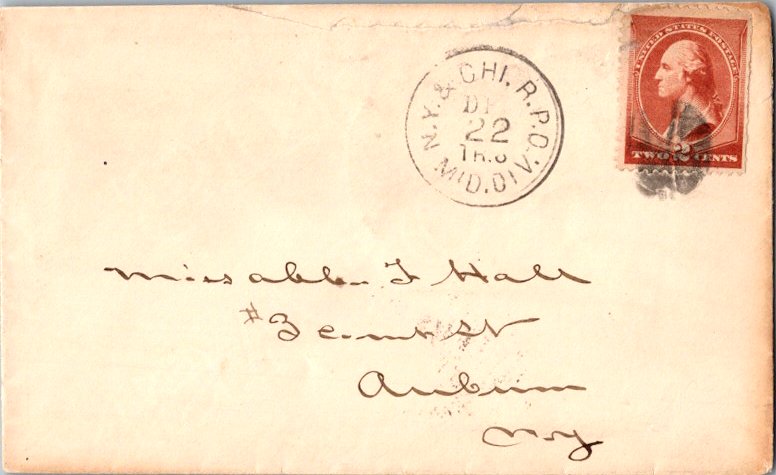 N.Y. & CHI. R.P.O.
22
MID. DIV.
UNITED STATES POSTAGE
2
TWO CENTS
Miss Abb F Hall
#3 St
Auburn
N Y